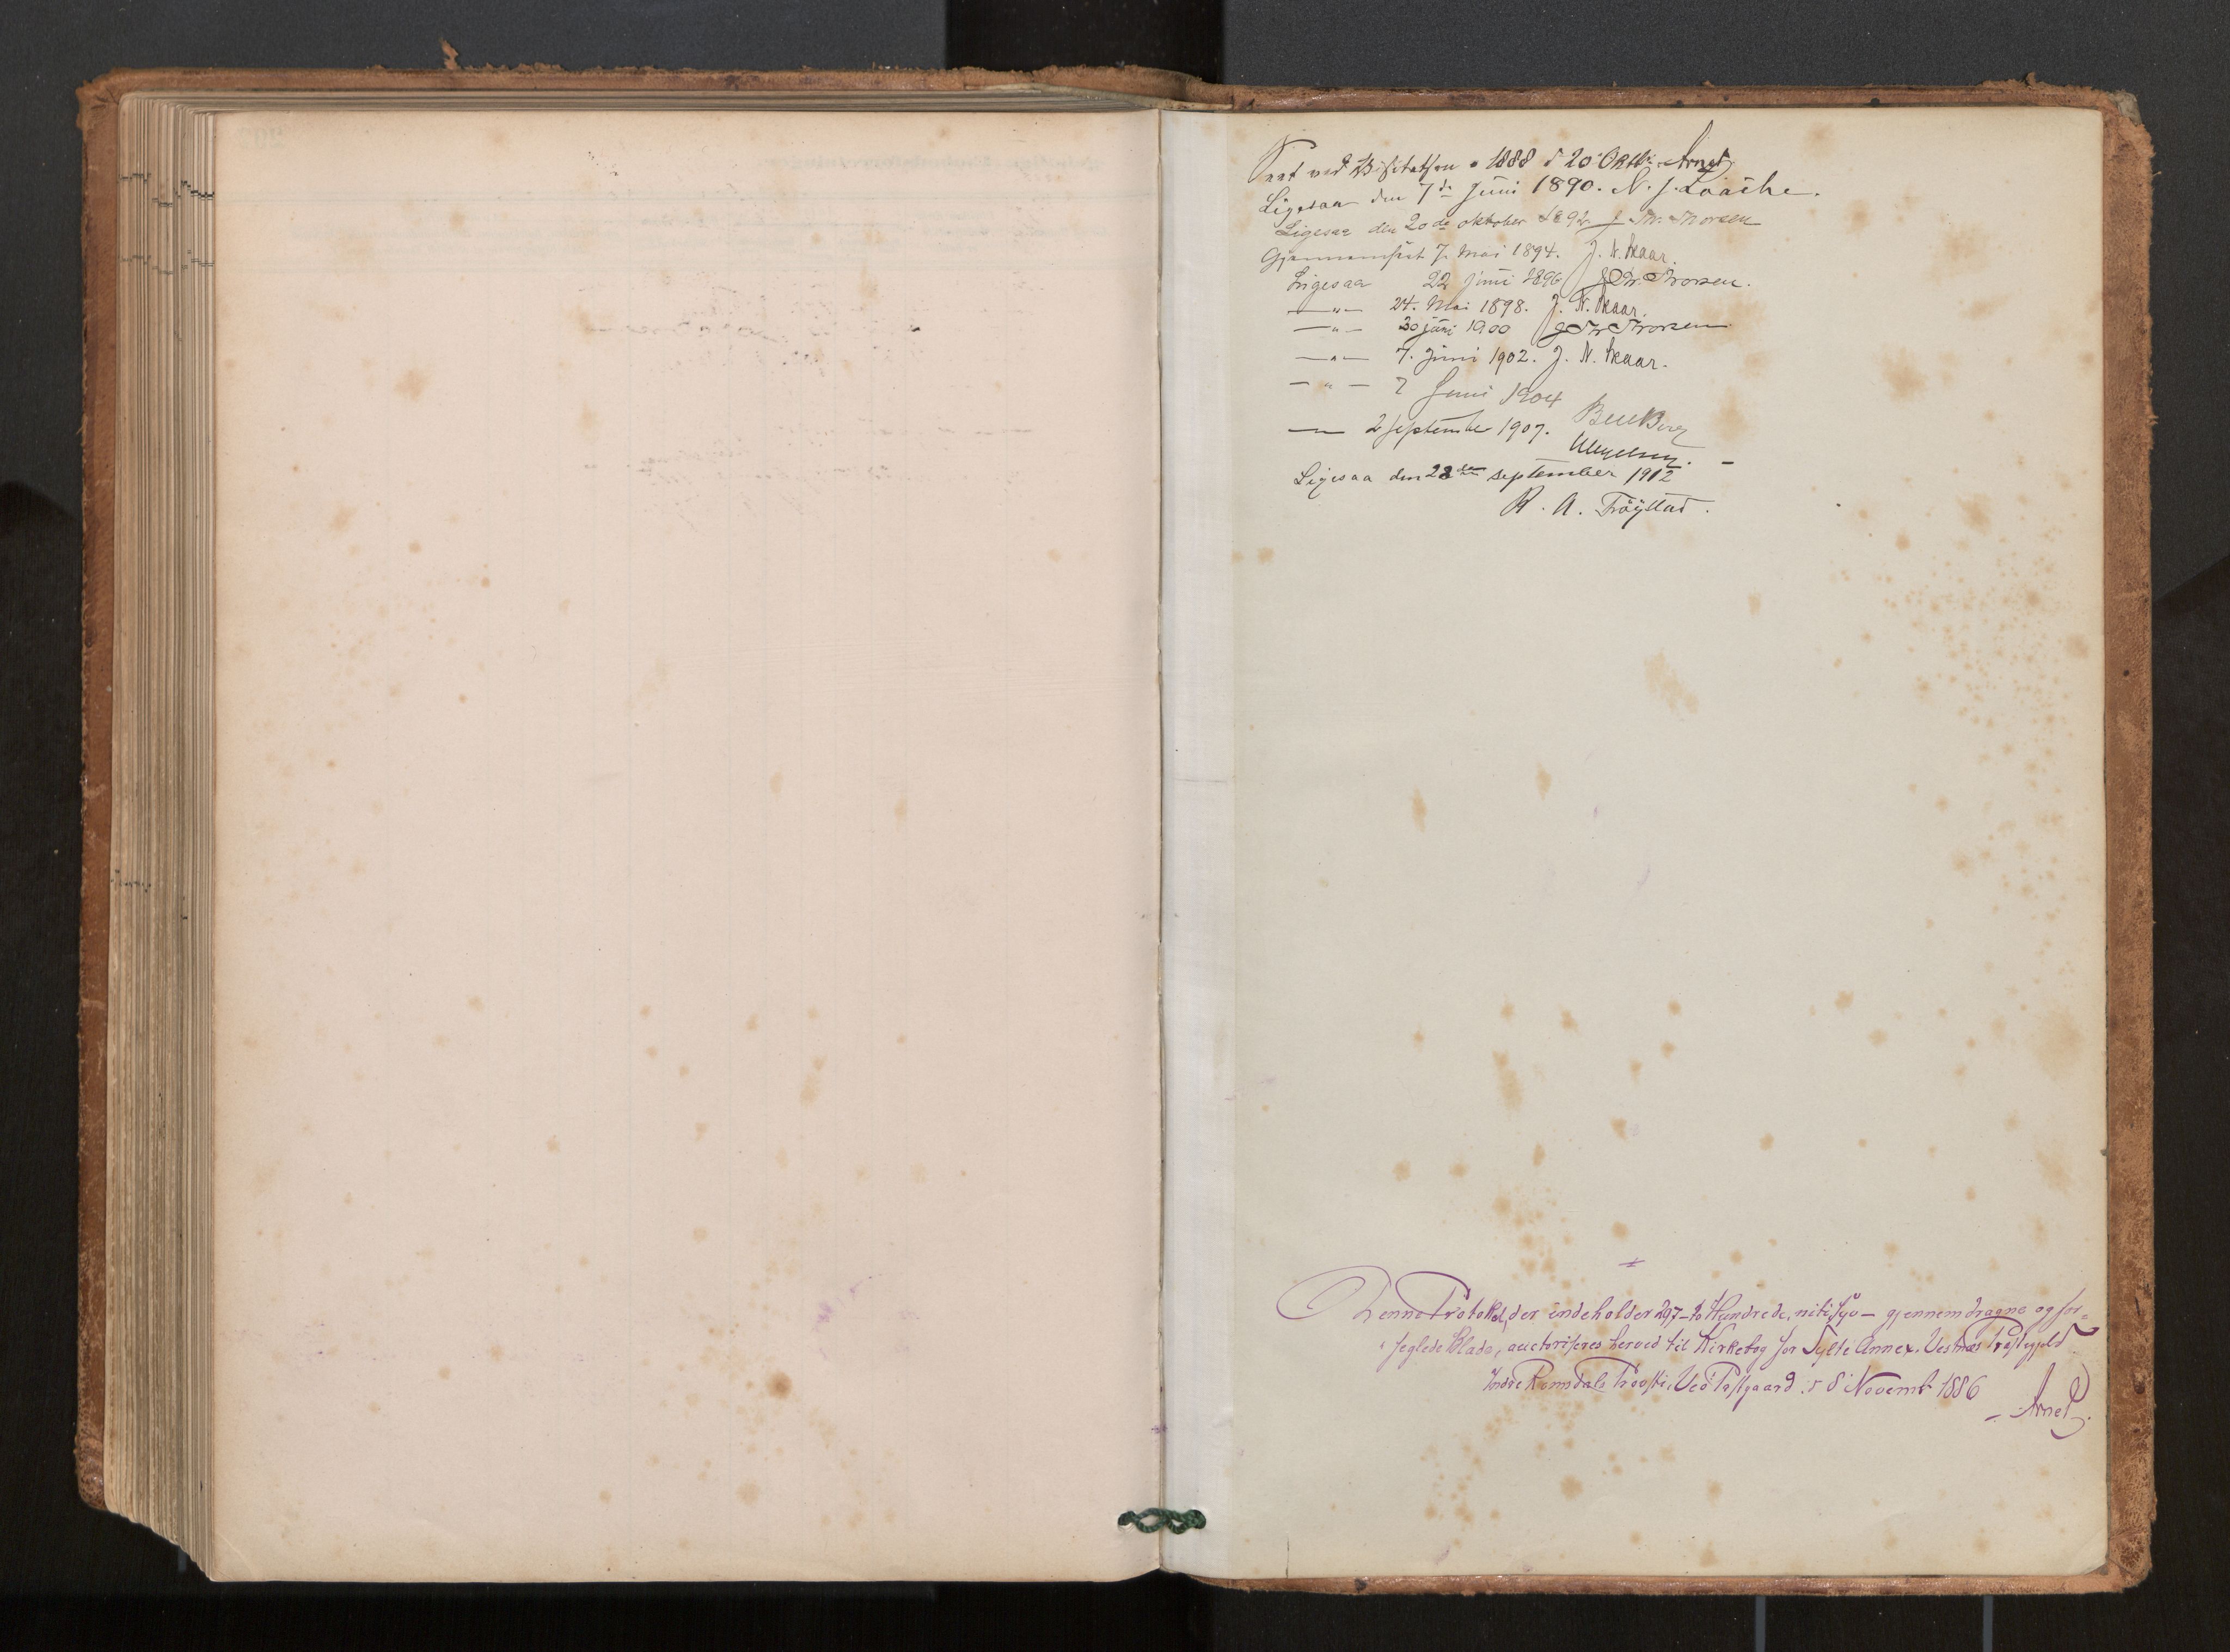 Seet ved Visitatsen 1888 d 20 Oktbr. Arnet
Ligesaa den 7de Juni 1890. N. J. Laache.
Ligesaa den 20de oktober 1892 J Chr. Thorsen
Gjennemseet 7. Mai 1894. J. N. Skaar.
Ligesaa 22 juni 1896 J Chr. Thorsen.
—"— 24. Mai 1898. J. N. Skaar.
—"— 30 juni 1900 J Chr Thorsen
—"— 7. Juni 1902. J. N. Skaar.
—"— 7 Juni 1904
— 2 september 1907.
Ligesaa den 28de september 1912
K. A. Frøystad.
Denne Protokol, der indeholder 297 – to Hundrede, niti syv – gjennemdragne og for-
seglede Blade, auctoriseres herved til Kirkebog for Sylte Annex. Vestnæs Præstegjeld
Indre Romsdals Provsti, Veø Præstgaard d 8 Novembr 1886
Arnet